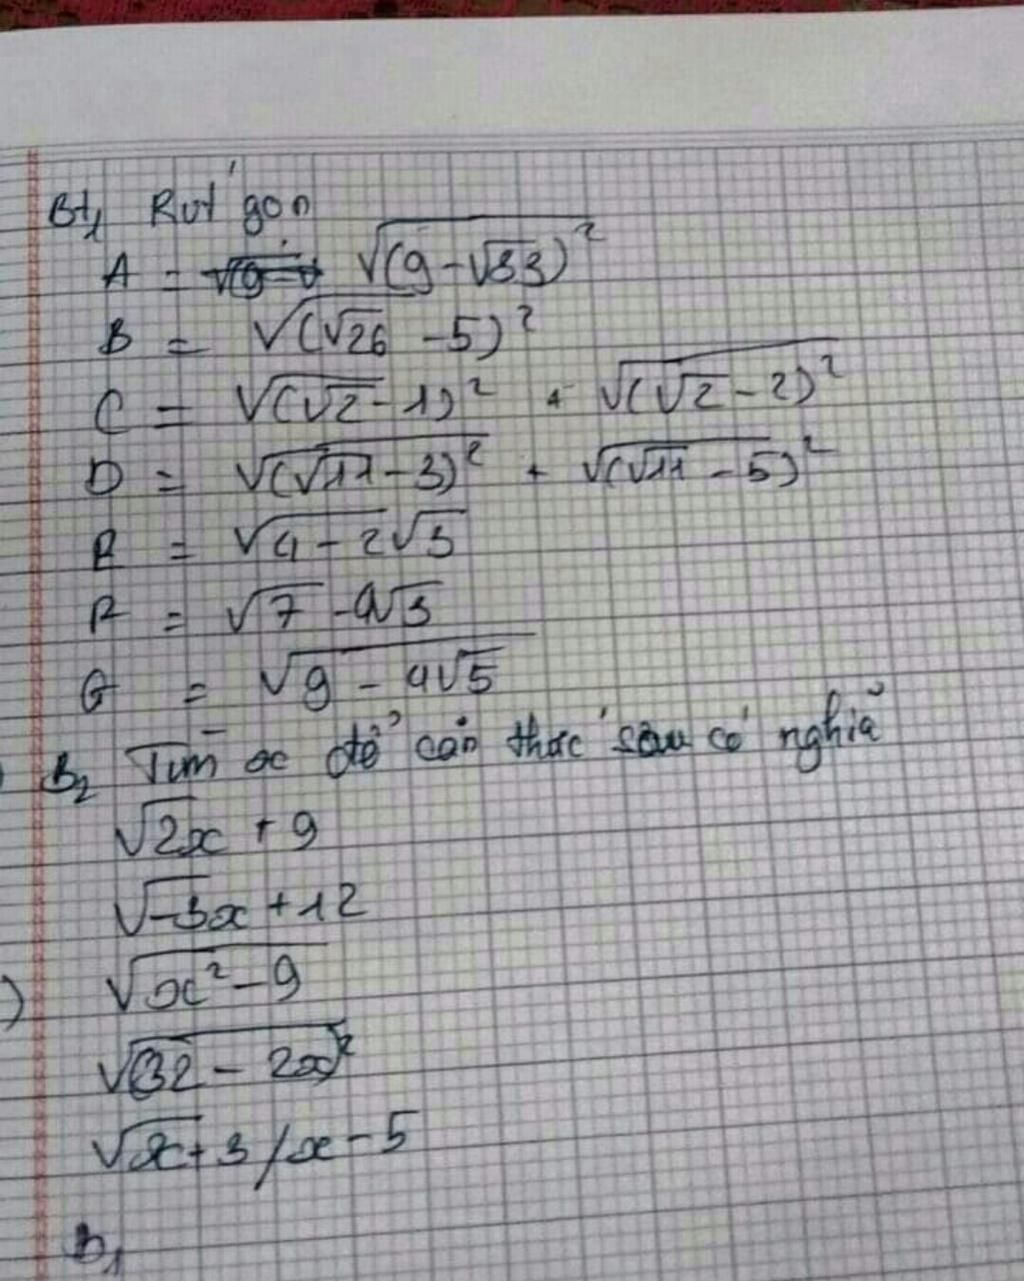 Bt1 Rút gọn
A = √(9-√33)²
B = √(√26 -5)²
C = √(√2-1)² + √(√2-2)²
D = √(√11-3)² + √(√11-5)²
E = √4-2√3
F = √7-4√3
G = √9-4√5
B2 Tìm x để căn thức sau có nghĩa
√2x + 9
√-3x +12
√x²-9
√(32 - 2x)²
√x+3/x-5
B1